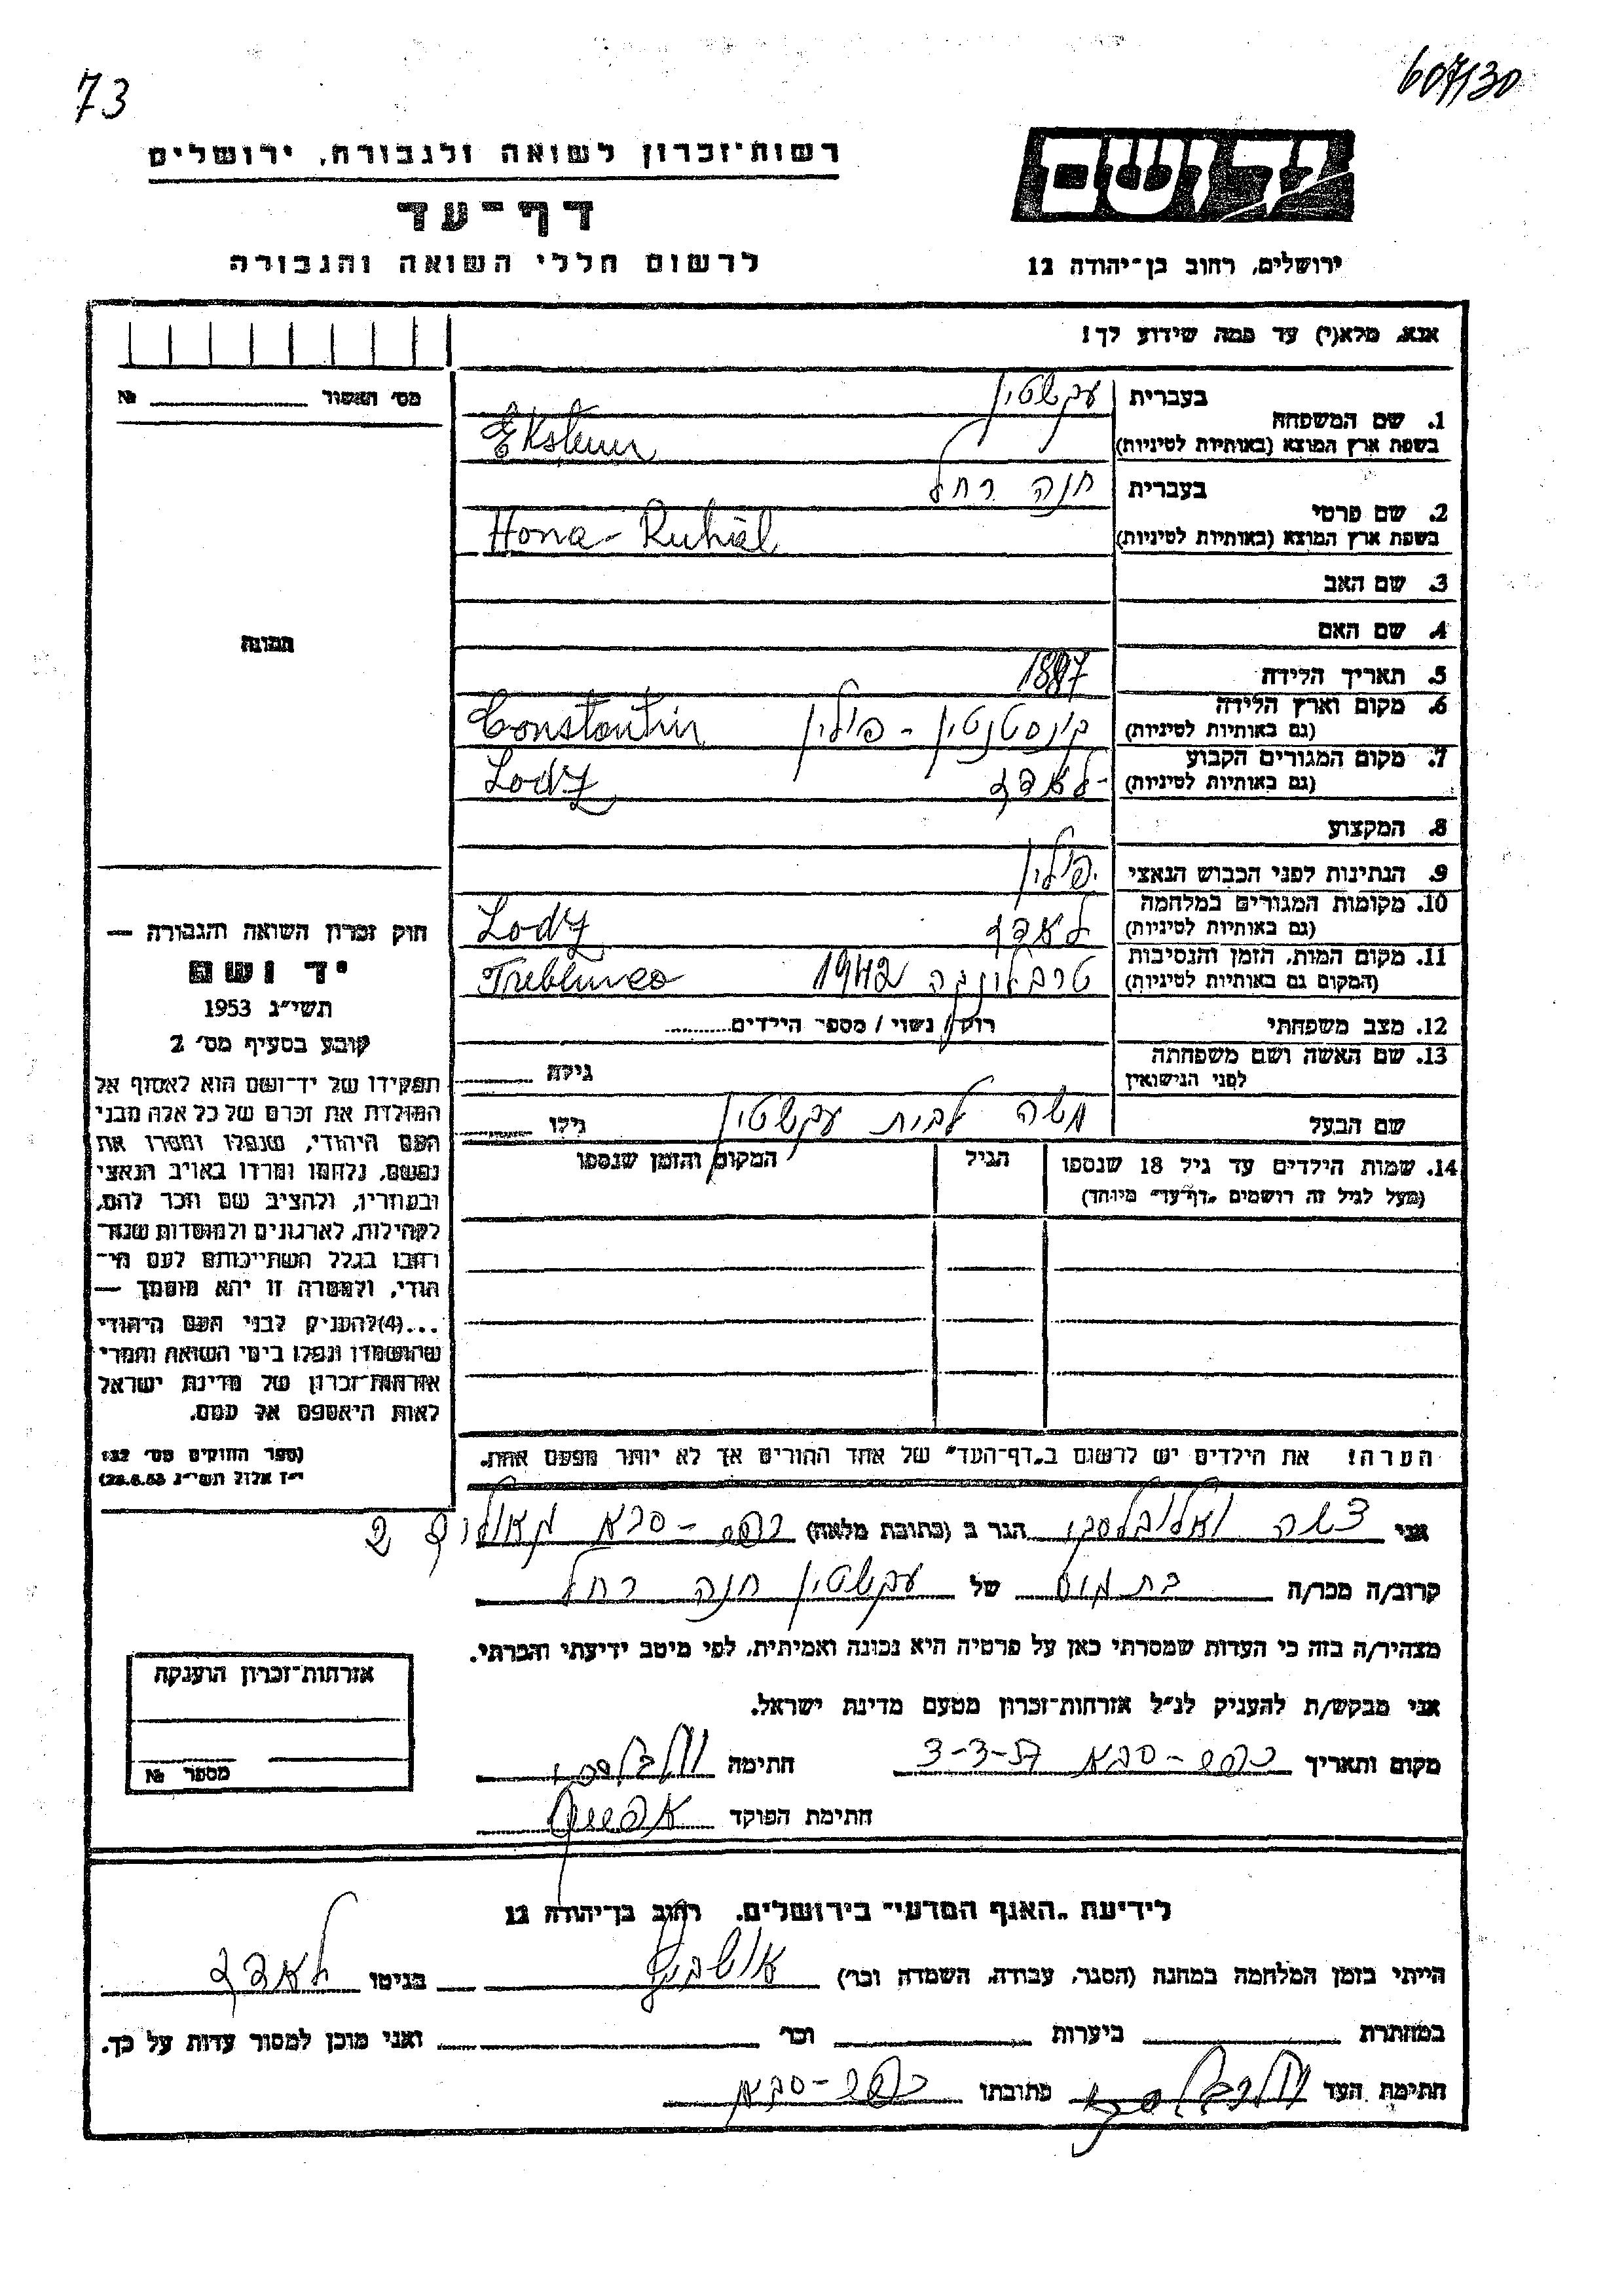 73
607/30
רשות־זכרון לשואה ולגבורה, ירושלים
יד ושם
דף־עד
לרשום חללי השואה והגבורה
ירושלים, רחוב בן־יהודה 12
אנא, מלא(י) עד כמה שידוע לך!
מס׳ האשור № ______
1. שם המשפחה בעברית עקשטין
בשפת ארץ המוצא (באותיות לטיניות) Ekstein
2. שם פרטי בעברית חנה רחל
בשפת ארץ המוצא (באותיות לטיניות) Hona-Ruhel
3. שם האב
4. שם האם
תמונה
5. תאריך הלידה 1887
6. מקום וארץ הלידה (גם באותיות לטיניות) קונסטנטין - פולין Constantin
7. מקום המגורים הקבוע (גם באותיות לטיניות) לאדז Lodz
8. המקצוע
9. הנתינות לפני הכבוש הנאצי פולין
10. מקומות המגורים במלחמה (גם באותיות לטיניות) לאדז Lodz
11. מקום המות, הזמן והנסיבות (המקום גם באותיות לטיניות) טרבלונקה 1942 Treblunca
12. מצב משפחתי רווק / נשוי / מספר הילדים
13. שם האשה ושם משפחתה לפני הנישואין גילה
שם הבעל משה לבית עקשטין גילו
14. שמות הילדים עד גיל 18 שנספו (מעל לגיל זה רושמים "דף־עד" מיוחד) הגיל המקום והזמן שנספו
הערה! את הילדים יש לרשום ב"דף־העד" של אחד ההורים אך לא יותר מפעם אחת.
חוק זכרון השואה והגבורה —
יד ושם
תשי״ג 1953
קובע בסעיף מס׳ 2
תפקידו של יד־ושם הוא לאסוף אל
המולדת את זכרם של כל אלה מבני
העם היהודי, שנפלו ומסרו את
נפשם, נלחמו ומרדו באויב הנאצי
ובעוזריו, ולהציב שם וזכר להם,
לקהילות, לארגונים ולמוסדות שנח־
רבו בגלל השתייכותם לעם הי־
הודי, ולמטרה זו יהא מוסמך —
...(4)להעניק לבני העם היהודי
שהושמדו ונפלו בימי השואה והמרי
אזרחות־זכרון של מדינת ישראל
לאות היאספם אל עמם.
(ספר החוקים מס׳ 132
י״ז אלול תשי״ג 28.8.53)
אני הגר ב (כתובת מלאה) כפר - סבא 2
קרוב/ה מכר/ה של עקשטין חנה רחל
מצהיר/ה בזה כי העדות שמסרתי כאן על פרטיה היא נכונה ואמיתית, לפי מיטב ידיעתי והכרתי.
אני מבקש/ת להעניק לנ״ל אזרחות־זכרון מטעם מדינת ישראל.
מקום ותאריך כפר - סבא 3-3-57 חתימה
חתימת הפוקד
אזרחות־זכרון הוענקה
מספר №
לידיעת "האגף המדעי" בירושלים, רחוב בן־יהודה 12
הייתי בזמן המלחמה במחנה (הסגר, עבודה, השמדה וכו׳) אושביץ בגיטו לאדז
במחתרת ביערות וכו׳ ואני מוכן למסור עדות על כך.
חתימת העד כתובתו כפר - סבא